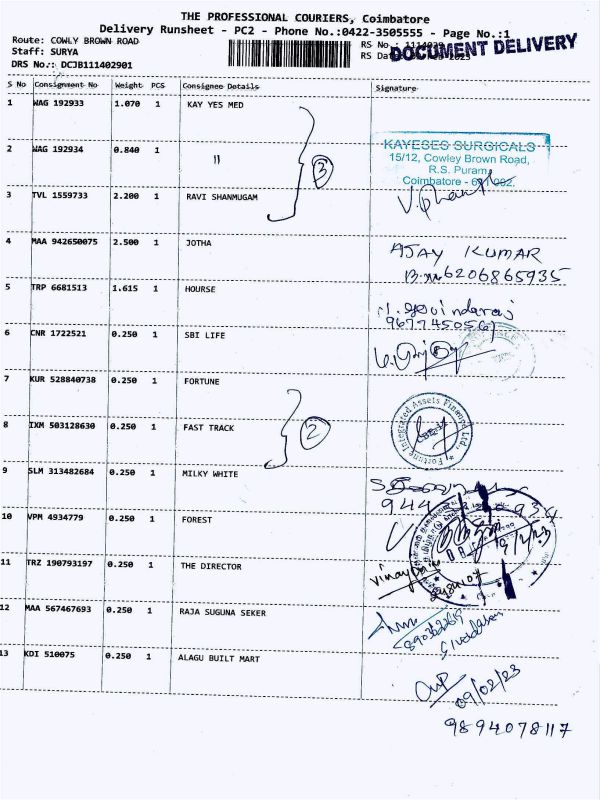 THE PROFESSIONAL COURIERS, Coimbatore
Delivery Runsheet - PC2 - Phone No.:0422-3505555 - Page No.:1
Route: COWLY BROWN ROAD
Staff: SURYA
DRS No.: DCJB111402901
RS No.:
RS Dat
DOCUMENT DELIVERY
S No Consignment No Weight PCS Consignee Details Signature
1 WAG 192933 1.070 1 KAY YES MED
2 WAG 192934 0.840 1 "
3
KAYESES SURGICALS
15/12, Cowley Brown Road,
R.S. Puram,
Coimbatore - 641 002.
3 TVL 1559733 2.200 1 RAVI SHANMUGAM
4 MAA 942650075 2.500 1 JOTHA AJAY KUMAR
6206865935
5 TRP 6681513 1.615 1 HOURSE
6 CNR 1722521 0.250 1 SBI LIFE
7 KUR 528840738 0.250 1 FORTUNE
Fortune Integrated Assets Finance Ltd.,
8 IXM 503128630 0.250 1 FAST TRACK
2
9 SLM 313482684 0.250 1 MILKY WHITE
944
10 VPM 4934779 0.250 1 FOREST
9/2/23
11 TRZ 190793197 0.250 1 THE DIRECTOR
12 MAA 567467693 0.250 1 RAJA SUGUNA SEKER
13 KDI 510075 0.250 1 ALAGU BUILT MART
09/02/23
9894078117